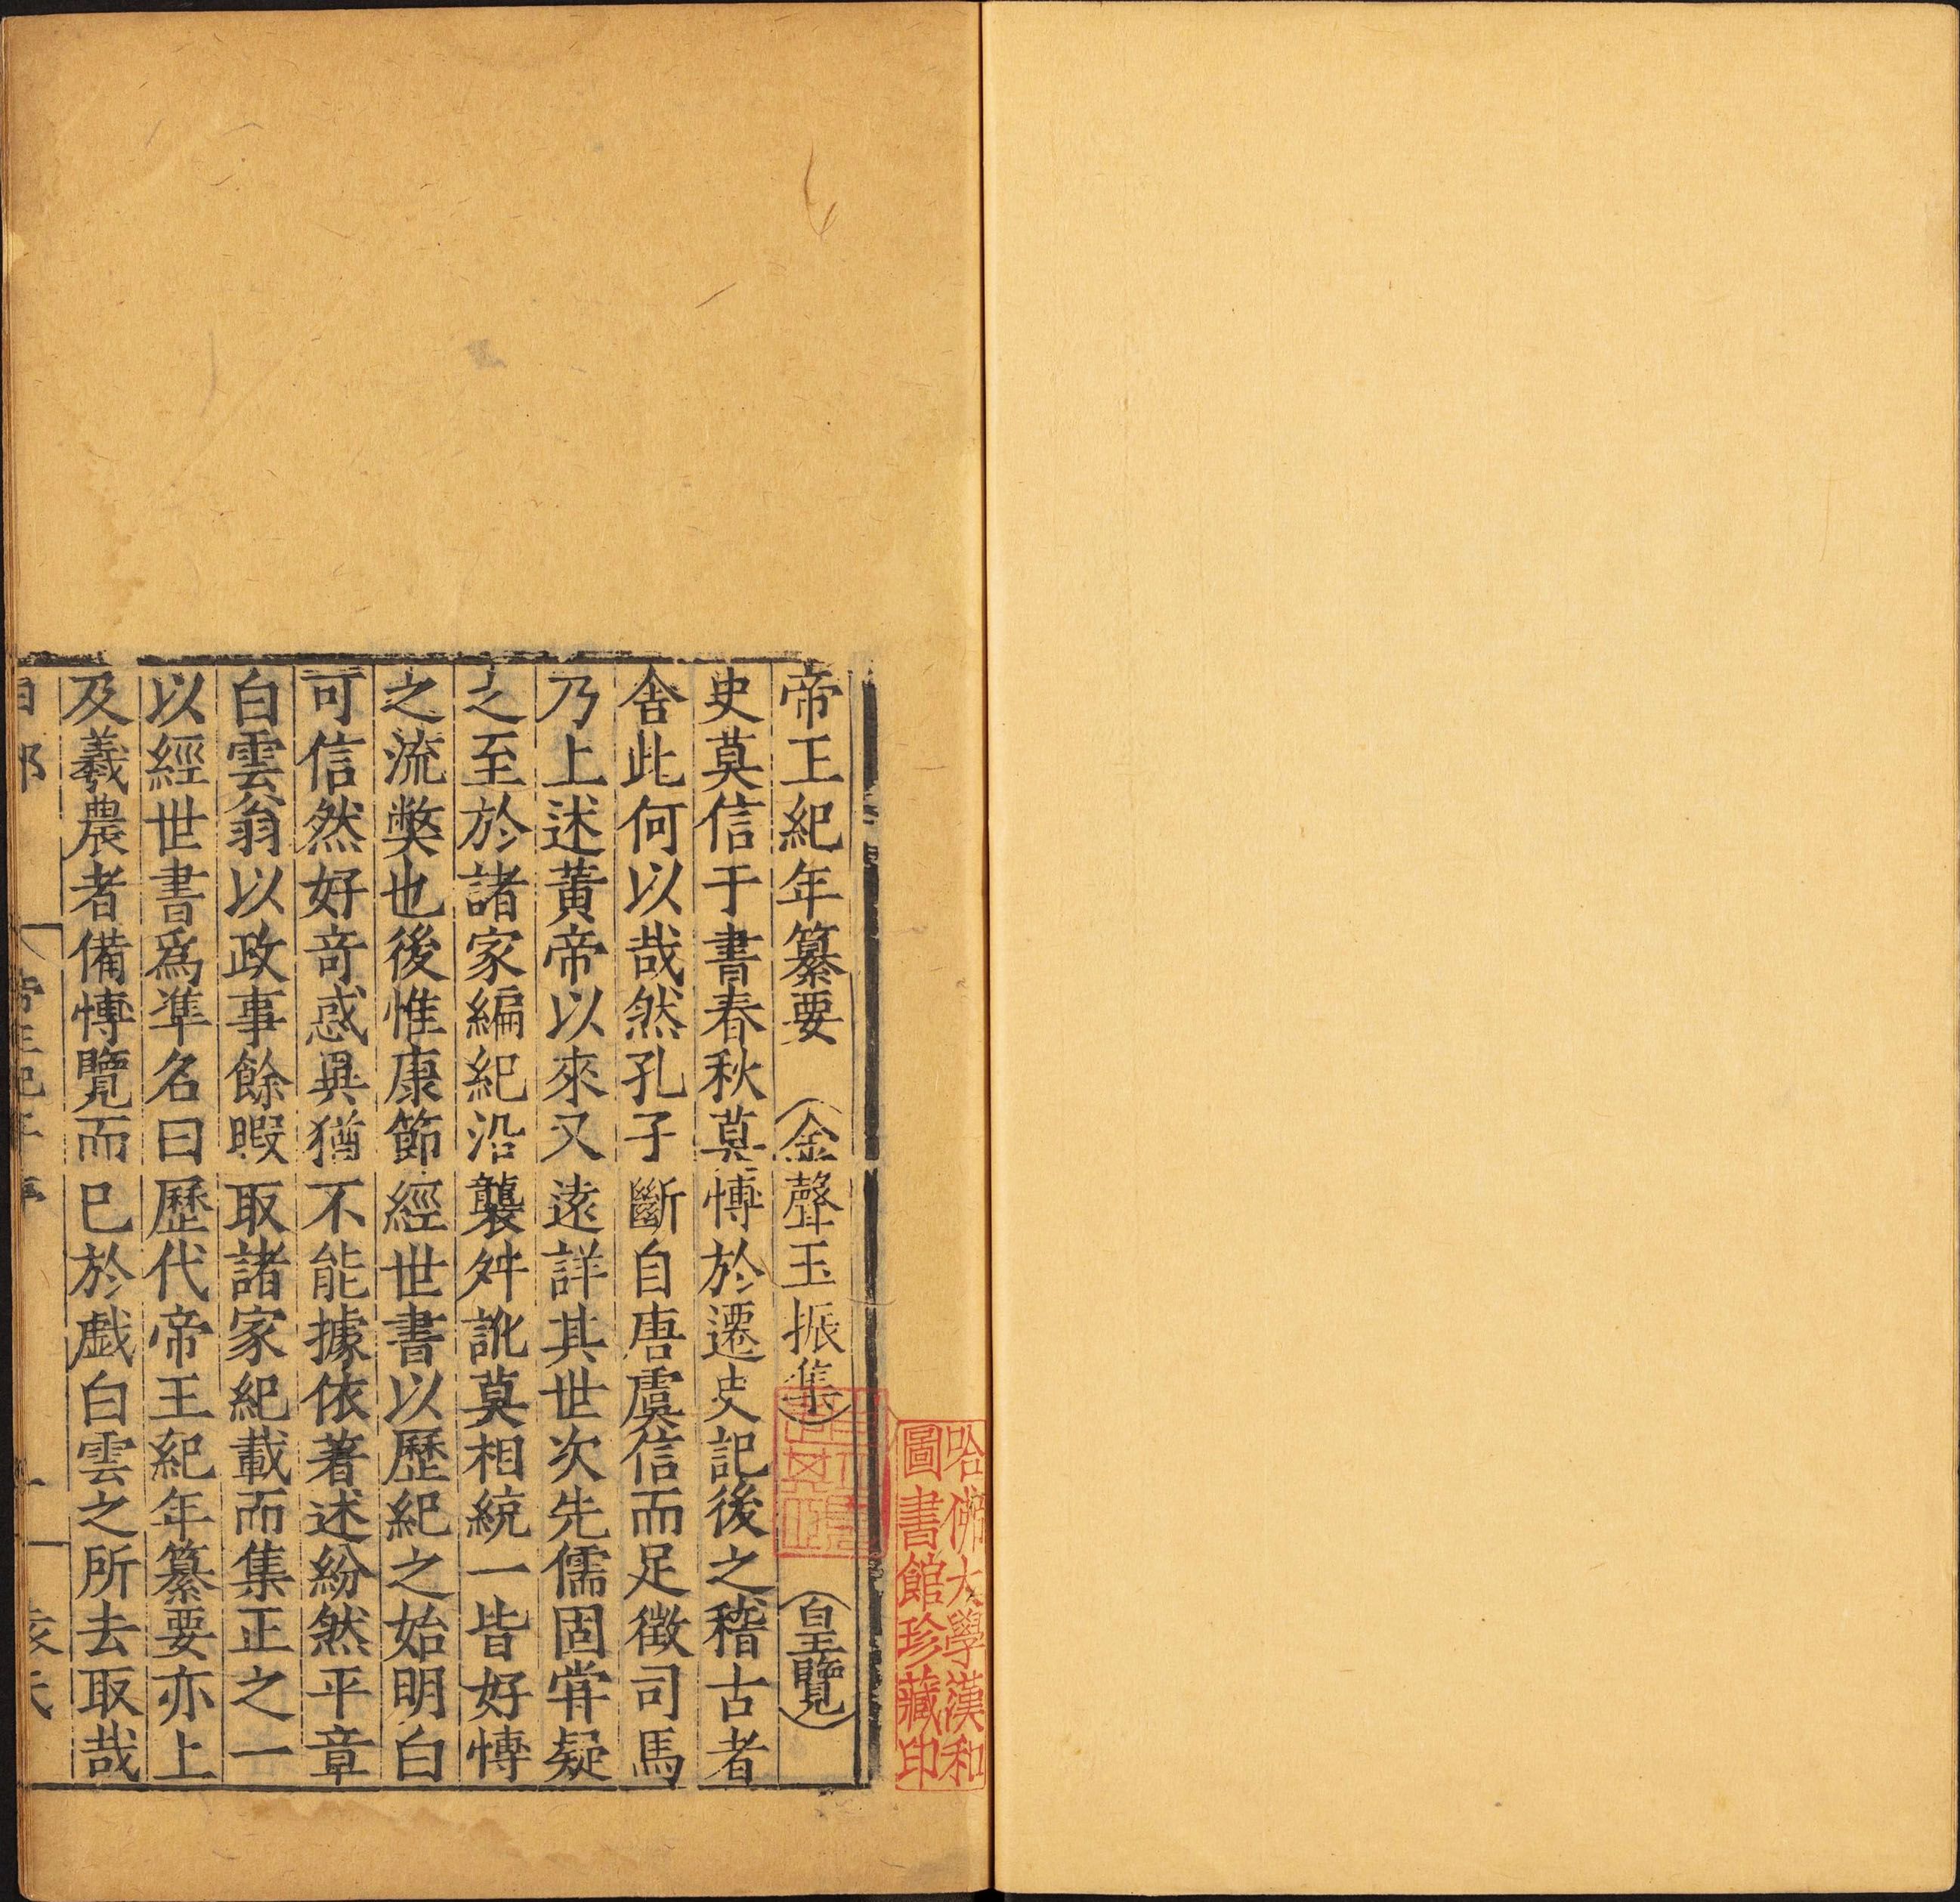 哈佛大學漢和
圖書館珍藏印
帝王紀年纂要　（金聲玉振集）　（皇覽）
史莫信于書春秋莫愽於遷史記後之稽古者
舍此何以哉然孔子斷自唐虞信而足徵司馬
乃上述黃帝以來又遠詳其世次先儒固甞疑
之至於諸家編紀沿襲舛訛莫相統一皆好愽
之流獘也後惟康節經世書以歷紀之始明白
可信然好竒惑異猶不能據依著述紛然平章
白雲翁以政事餘暇取諸家紀載而集正之一
以經世書爲準名曰歷代帝王紀年纂要亦上
及羲農者備愽覽而已於戯白雲之所去取哉